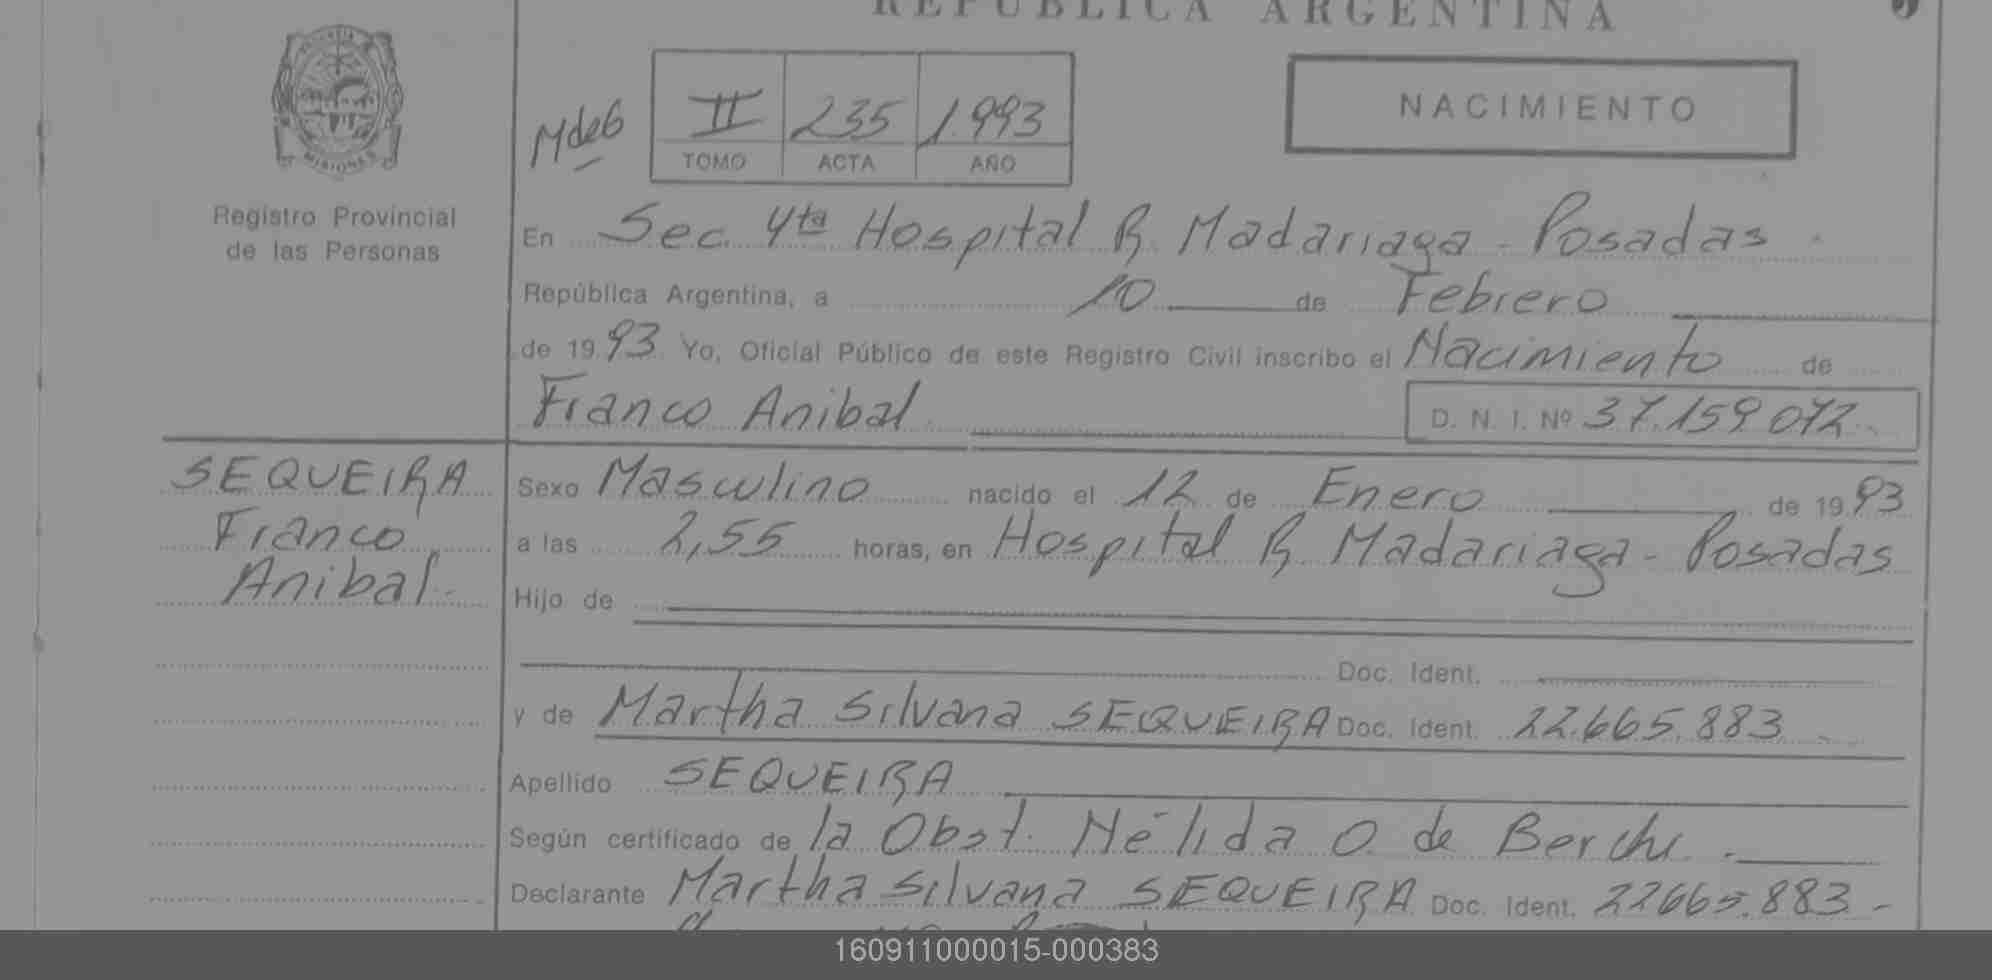 REPUBLICA ARGENTINA
MISIONES
Registro Provincial
de las Personas
Mde6
II 235 1.993
TOMO ACTA AÑO
NACIMIENTO
En Sec. 4ta Hospital R. Madariaga - Posadas.
República Argentina, a 10 de Febrero
de 19 93 Yo, Oficial Público de este Registro Civil inscribo el Nacimiento de
Franco Anibal
D. N. I. Nº 37.159.072
SEQUEIRA
Franco
Anibal.
Sexo Masculino nacido el 12 de Enero de 19 93
a las 2,55 horas, en Hospital R. Madariaga - Posadas
Hijo de
Doc. Ident.
y de Martha Silvana SEQUEIRA Doc. Ident. 22.665.883
Apellido SEQUEIRA
Según certificado de la Obst. Nélida O de Berchi.
Declarante Martha Silvana SEQUEIRA Doc. Ident. 22665.883 -
160911000015-000383